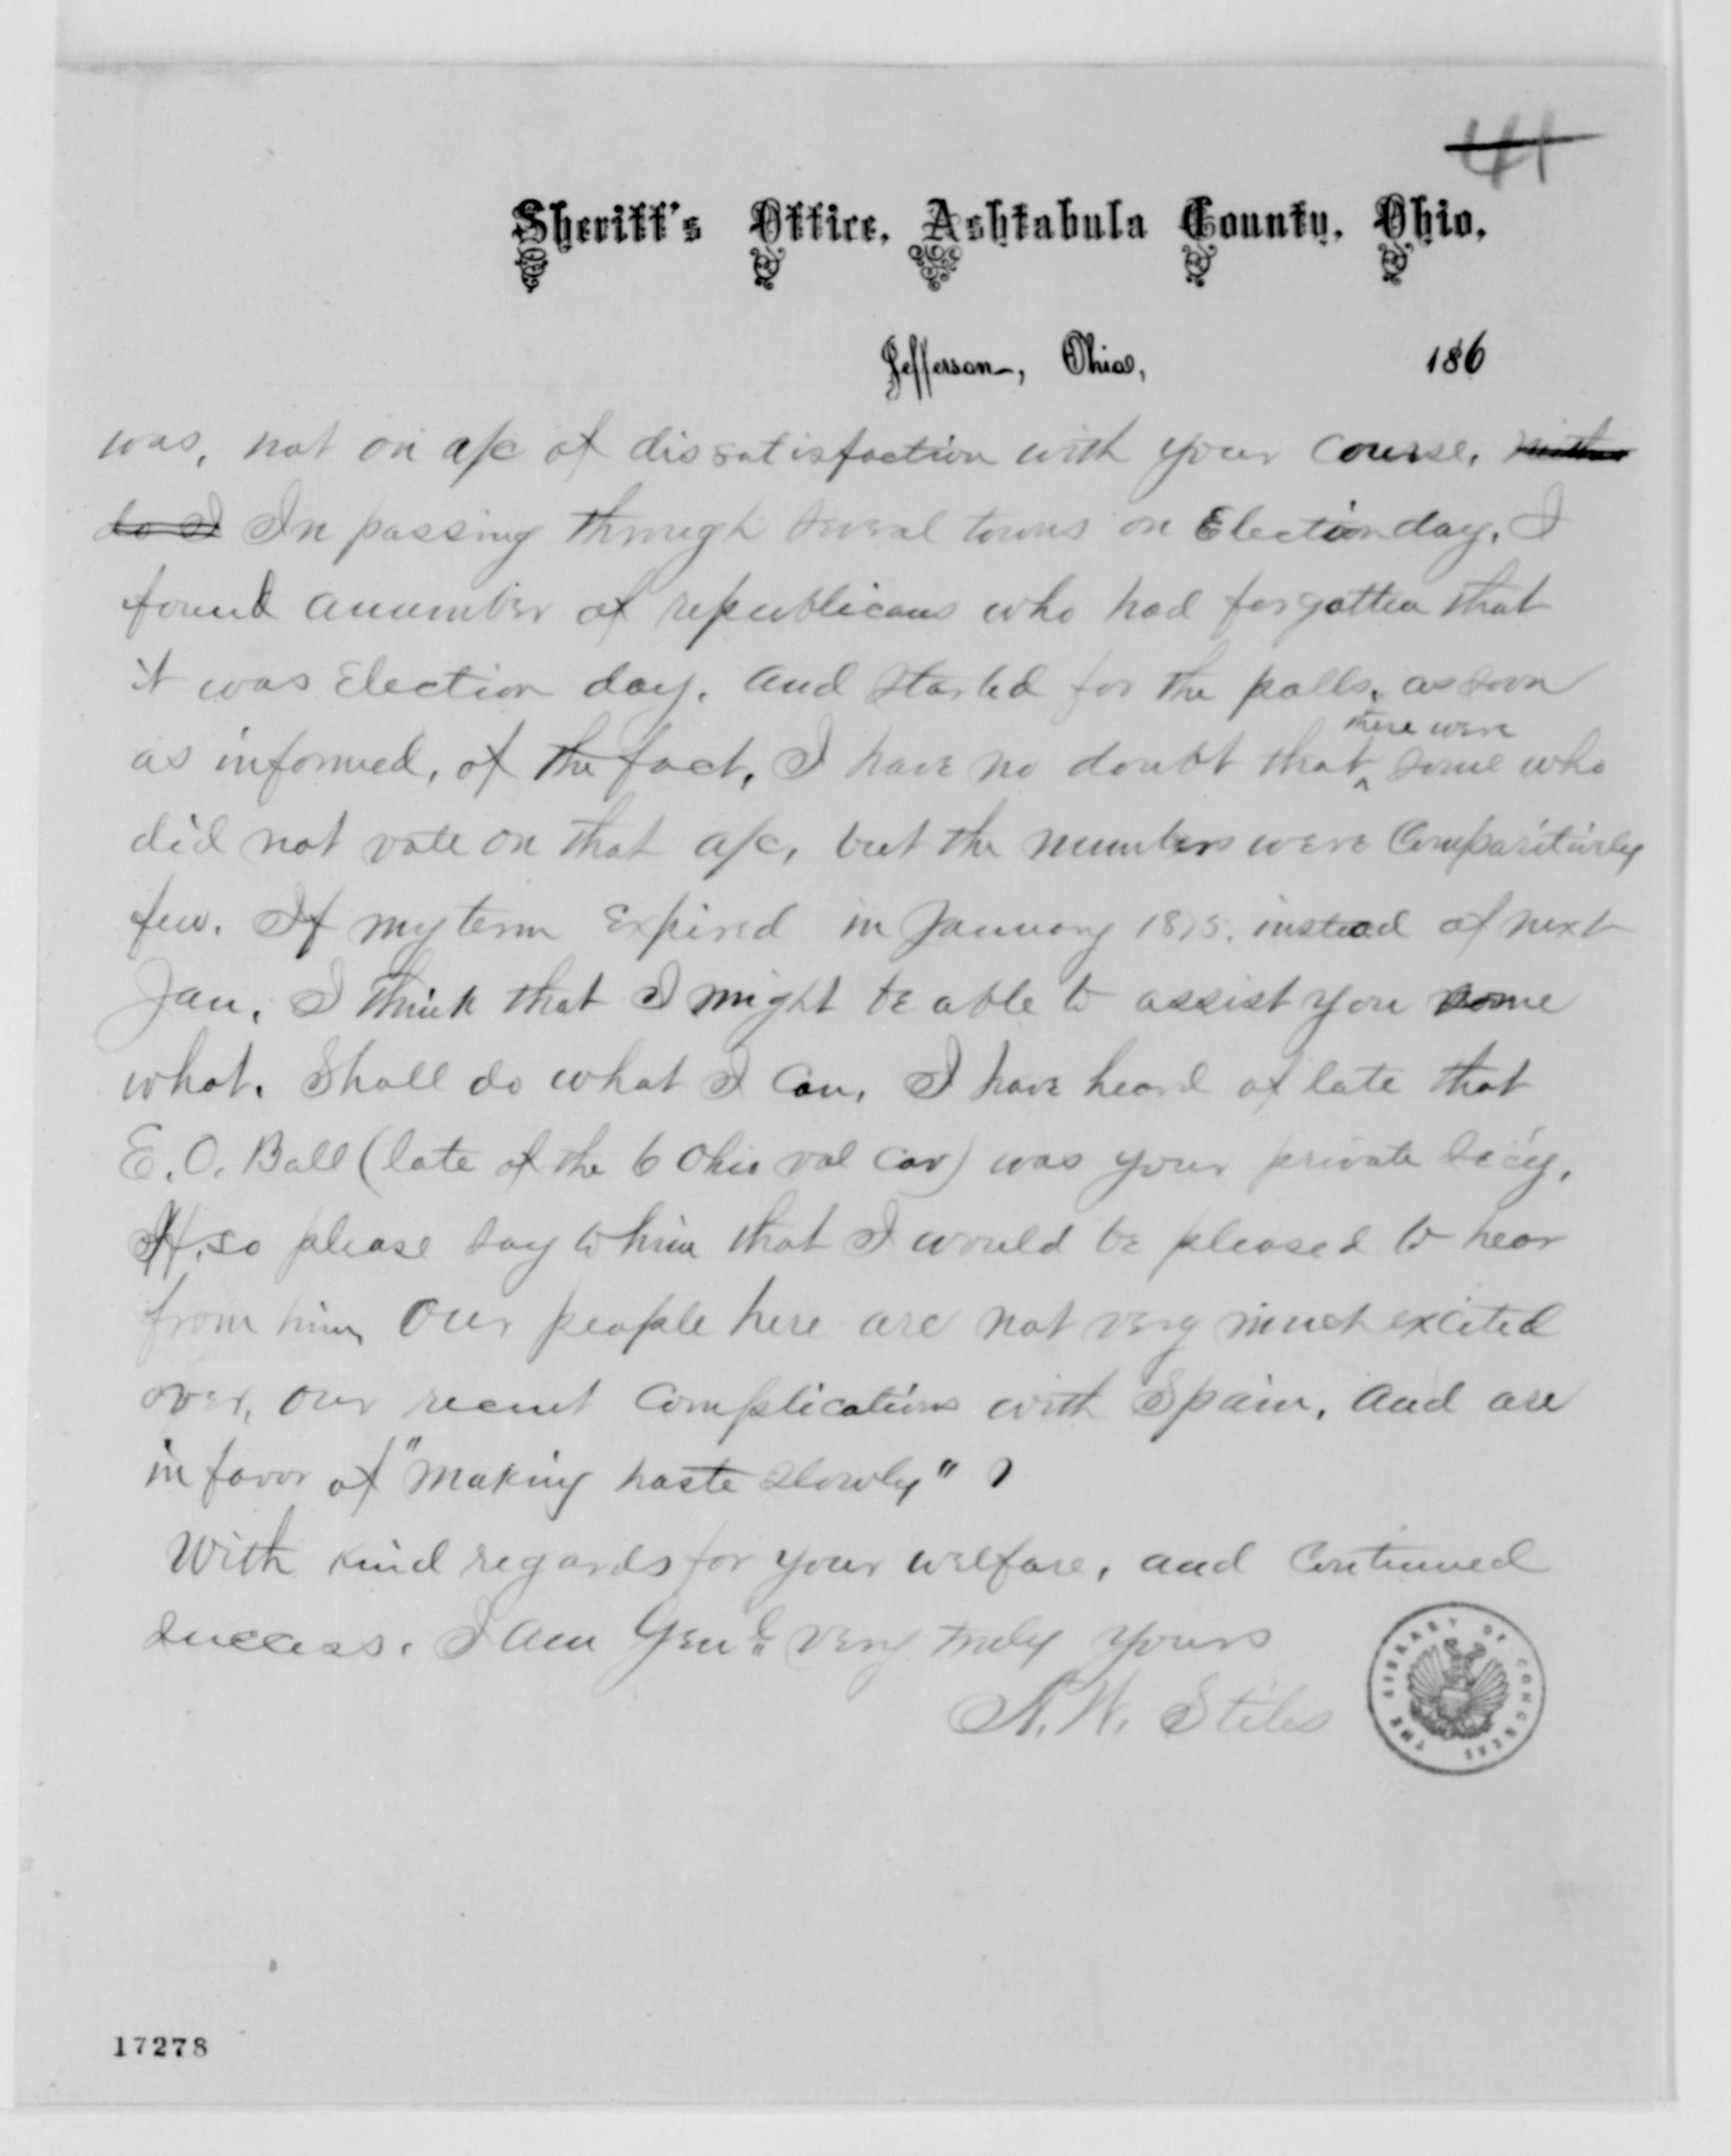 41
Sheriff's Office, Ashtabula County, Ohio,
Jefferson, Ohio, 186
was, not on a/c of dissatisfaction with your course.
do I In passing through several towns on Election day, I
found anumber of republicans who had forgotten that
it was Election day. and started for the polls, as soon
there were
as informed, of the fact, I have no doubt that ^ some who
did not vote on that a/c, but the numbers were Comparitively
few. If my term Expired in January 1875. instead of next
Jan, I think that I might be able to assist you some
what. Shall do what I Can, I have heard of late that
E. O. Ball (late of the 6 Ohio vol Cav) was your private Sec'y,
If so please say to him that I would be pleased to hear
from him, Our people here are not very much excited
over, our recent Complications with Spain, and are
in favor of "Making haste slowly"
With kind regards for your welfare, and Continued
success. I am Genl very truly yours
A. W. Stiles
THE LIBRARY OF CONGRESS
17278